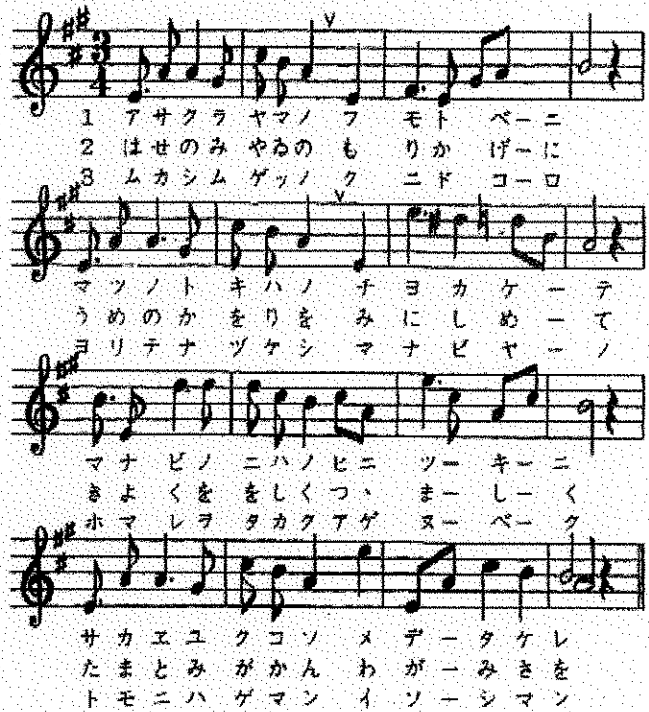 3
4
1 アサクラ ヤマノ フ モト ベーニ
2 はせのみ やゐの も りか げーに
3 ムカシム ゲツノ ク ニド コーロ
マツノト キハノ チ ヨカ ケーテ
うめのか をりを み にし めーて
ヨリテナ ヅケシ マ ナビ ヤーノ
マナビノ ニハノヒニ ツー キーニ
きよくを をしくつゝ まー しーく
ホマレヲ タカクアゲ ヌー ベーク
サカヱユ クコソ メ データケレ
たまとみ がかん わ がーみさを
トモニハ ゲマン イ ソーシマン